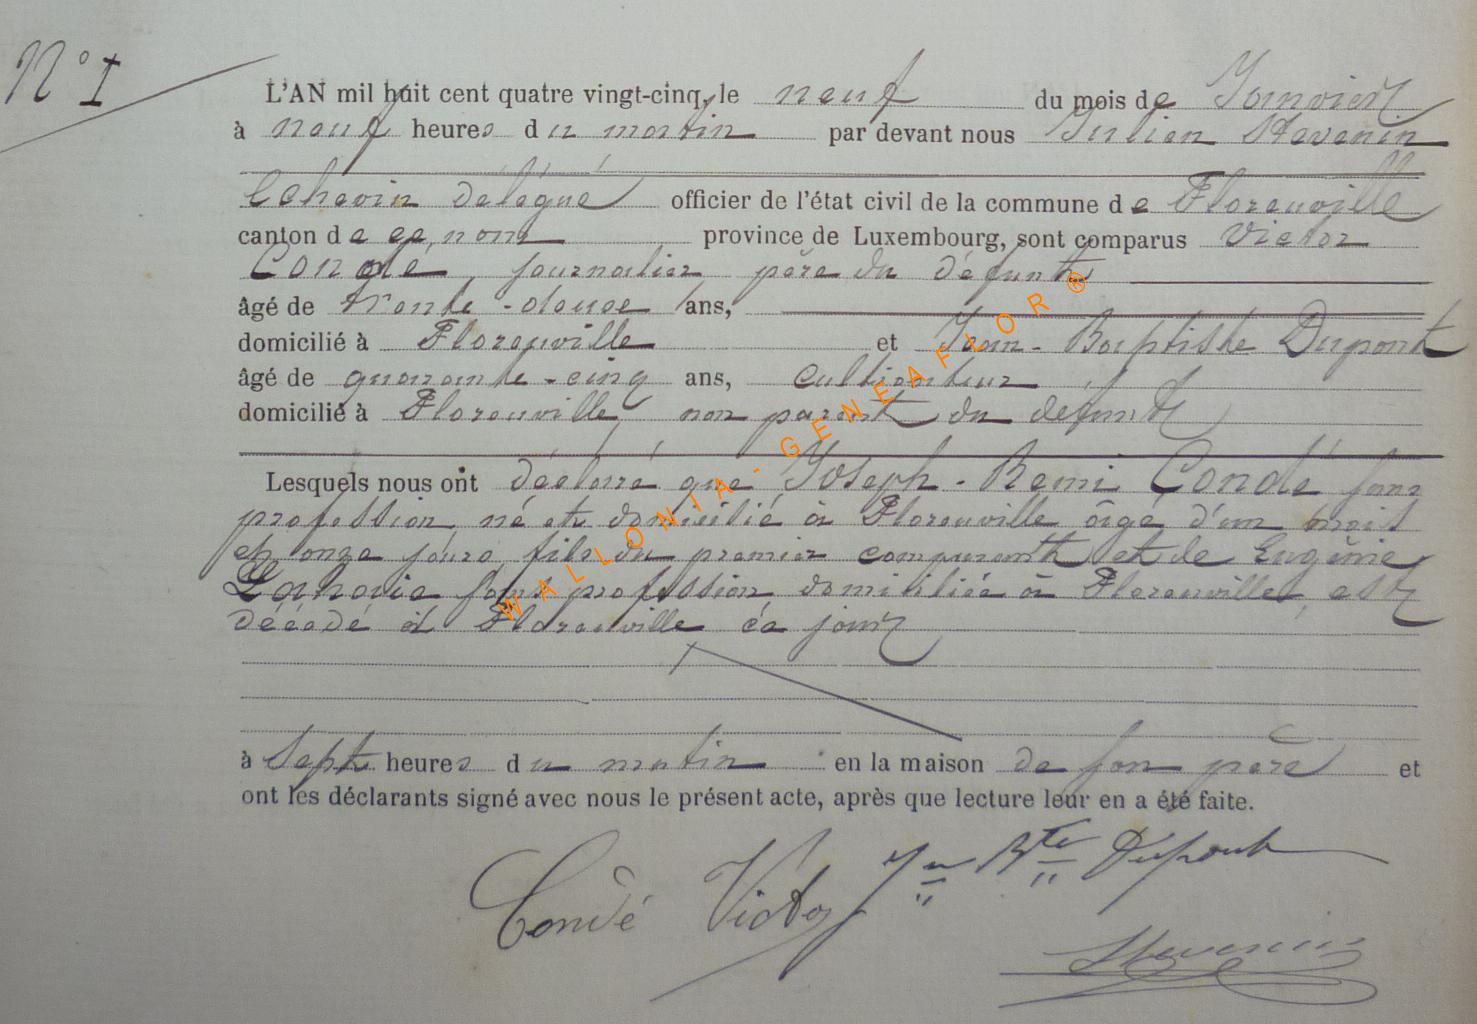 N° 1
L'AN mil huit cent quatre vingt-cinq, le neuf du mois de Janvier
à neuf heures du matin par devant nous Julien Stevenin
Echevin délégué officier de l'état civil de la commune de Florenville
canton de ce nom province de Luxembourg, sont comparus Victor
Condé, journalier père du défunt
âgé de trente-douze ans,
domicilié à Florenville et Jean-Baptiste Dupont
âgé de quarante-cinq ans, cultivateur
domicilié à Florenville, non parent du défunt
Lesquels nous ont déclaré que Joseph-Remi Condé sans
profession né et domicilié à Florenville âgé d'un mois
et onze jours fils du premier comparant et de Eugènie
Lahaie sans profession domiciliée à Florenville, est
décédé à Florenville ce jour
à sept heures du matin en la maison de son père et
ont les déclarants signé avec nous le présent acte, après que lecture leur en a été faite.
Condé Victor Jn Bte Dupont
Stevenin
WALLONIA-GENEAFLOR ®